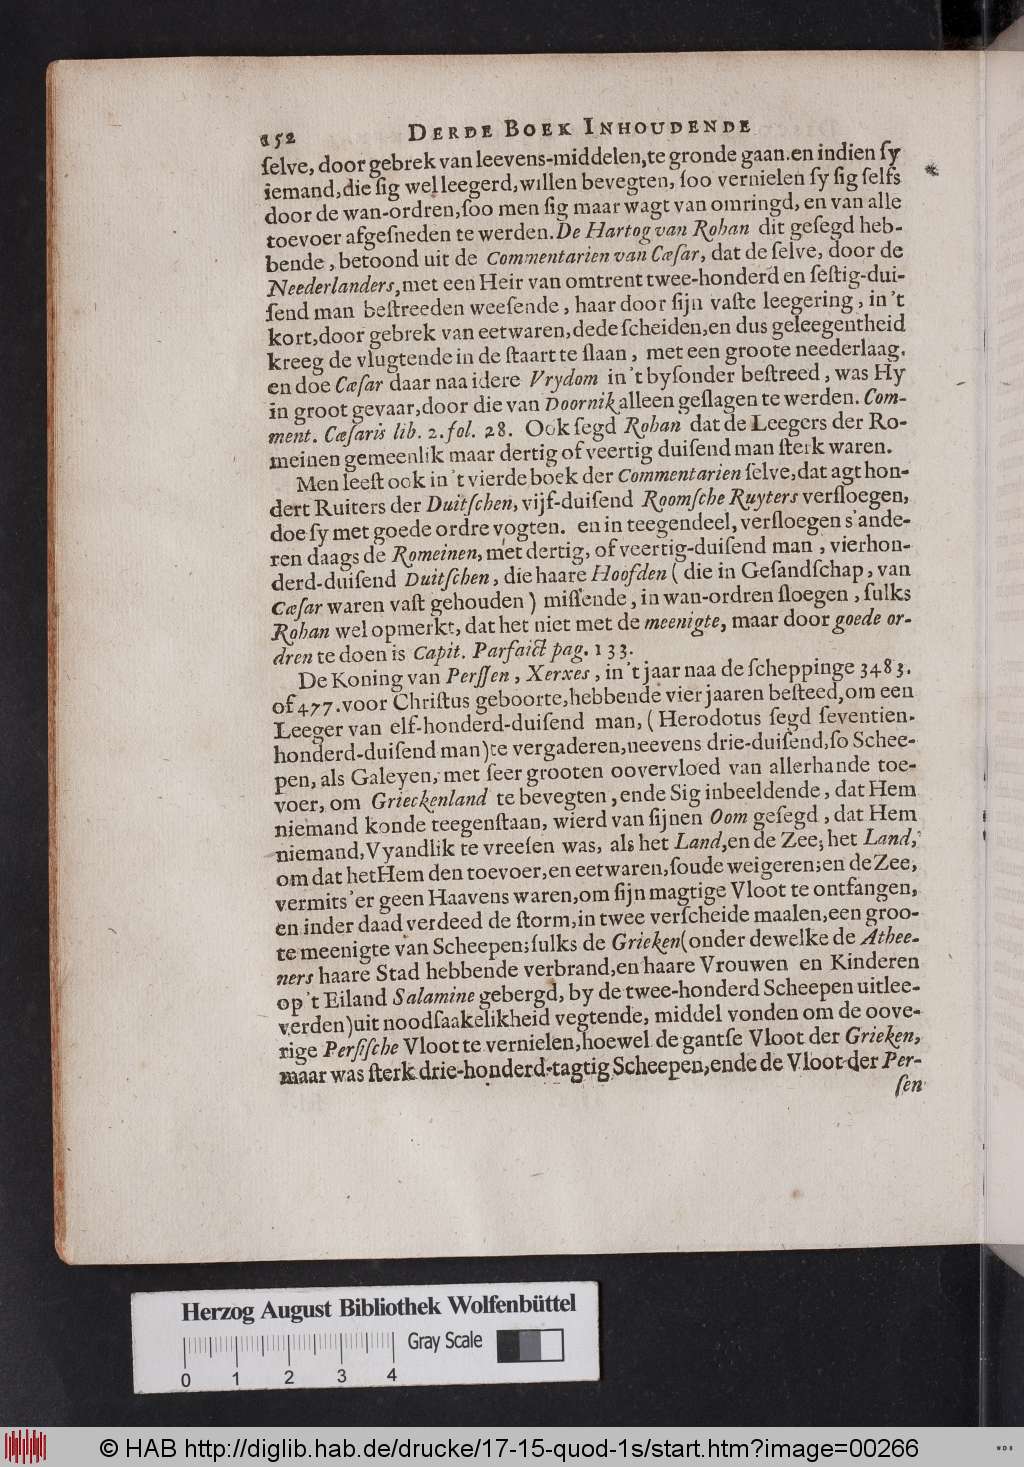 152 DERDE BOEK INHOUDENDE
ſelve, door gebrek van leevens-middelen, te gronde gaan. en indien ſy
iemand, die ſig wel leegerd, willen bevegten, ſoo vernielen ſy ſig ſelfs
door de wan-ordren, ſoo men ſig maar wagt van omringd, en van alle
toevoer afgeſneden te werden. De Hartog van Rohan dit geſegd heb-
bende, betoond uit de Commentarien van Cæſar, dat de ſelve, door de
Neederlanders, met een Heir van omtrent twee-honderd en ſeſtig-dui-
ſend man beſtreeden weeſende, haar door ſijn vaſte leegering, in 't
kort, door gebrek van eetwaren, dede ſcheiden, en dus geleegentheid
kreeg de vlugtende in de ſtaart te ſlaan, met een groote neederlaag.
en doe Cæſar daar naa idere Vrydom in 't byſonder beſtreed, was Hy
in groot gevaar, door die van Doornik alleen geſlagen te werden. Com-
ment. Cæſaris lib. 2. fol. 28. Ook ſegd Rohan dat de Leegers der Ro-
meinen gemeenlik maar dertig of veertig duiſend man ſterk waren.
Men leeſt ook in 't vierde boek der Commentarien ſelve, dat agt hon-
dert Ruiters der Duitſchen, vijf-duiſend Roomſche Ruyters verſloegen,
doe ſy met goede ordre vogten. en in teegendeel, verſloegen s'ande-
ren daags de Romeinen, met dertig, of veertig-duiſend man, vierhon-
derd-duiſend Duitſchen, die haare Hoofden (die in Geſandſchap, van
Cæſar waren vaſt gehouden) miſſende, in wan-ordren ſloegen, ſulks
Rohan wel opmerkt, dat het niet met de meenigte, maar door goede or-
dren te doen is Capit. Parfaict pag. 133.
De Koning van Perſſen, Xerxes, in 't jaar naa de ſcheppinge 3483.
of 477. voor Chriſtus geboorte, hebbende vier jaaren beſteed, om een
Leeger van elf-honderd-duiſend man, (Herodotus ſegd ſeventien-
honderd-duiſend man) te vergaderen, neevens drie-duiſend, ſo Schee-
pen, als Galeyen, met ſeer grooten oovervloed van allerhande toe-
voer, om Grieckenland te bevegten, ende Sig inbeeldende, dat Hem
niemand konde teegenſtaan, wierd van ſijnen Oom geſegd, dat Hem
niemand, Vyandlik te vreeſen was, als het Land, en de Zee; het Land,
om dat het Hem den toevoer, en eetwaren, ſoude weigeren; en de Zee,
vermits 'er geen Haavens waren, om ſijn magtige Vloot te ontfangen,
en inder daad verdeed de ſtorm, in twee verſcheide maalen, een groo-
te meenigte van Scheepen; ſulks de Grieken (onder dewelke de Athee-
ners haare Stad hebbende verbrand, en haare Vrouwen en Kinderen
op 't Eiland Salamine gebergd, by de twee-honderd Scheepen uitlee-
verden) uit noodſaakelikheid vegtende, middel vonden om de oove-
rige Perſiſche Vloot te vernielen, hoewel de gantſe Vloot der Grieken,
maar was ſterk drie-honderd-tagtig Scheepen, ende de Vloot der Per-
ſen
Herzog August Bibliothek Wolfenbüttel
Gray Scale
0 1 2 3 4
© HAB http://diglib.hab.de/drucke/17-15-quod-1s/start.htm?image=00266
WDB